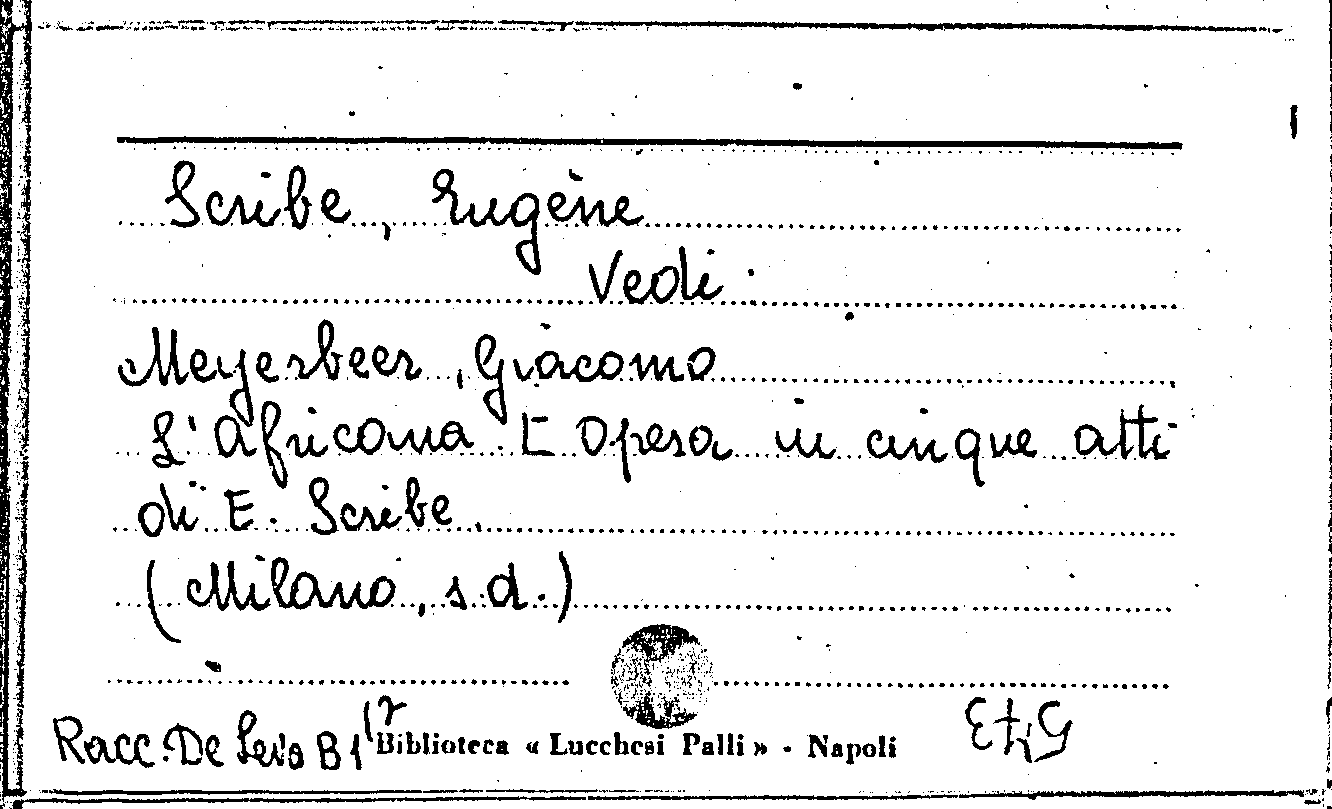 Scribe, Eugène
Vedi:
Meyerbeer, Giacomo
L'Africana. E Opera in cinque atti
di E. Scribe.
(Milano, s.d.)
Racc. De Leva B 1
Biblioteca « Lucchesi Palli » - Napoli